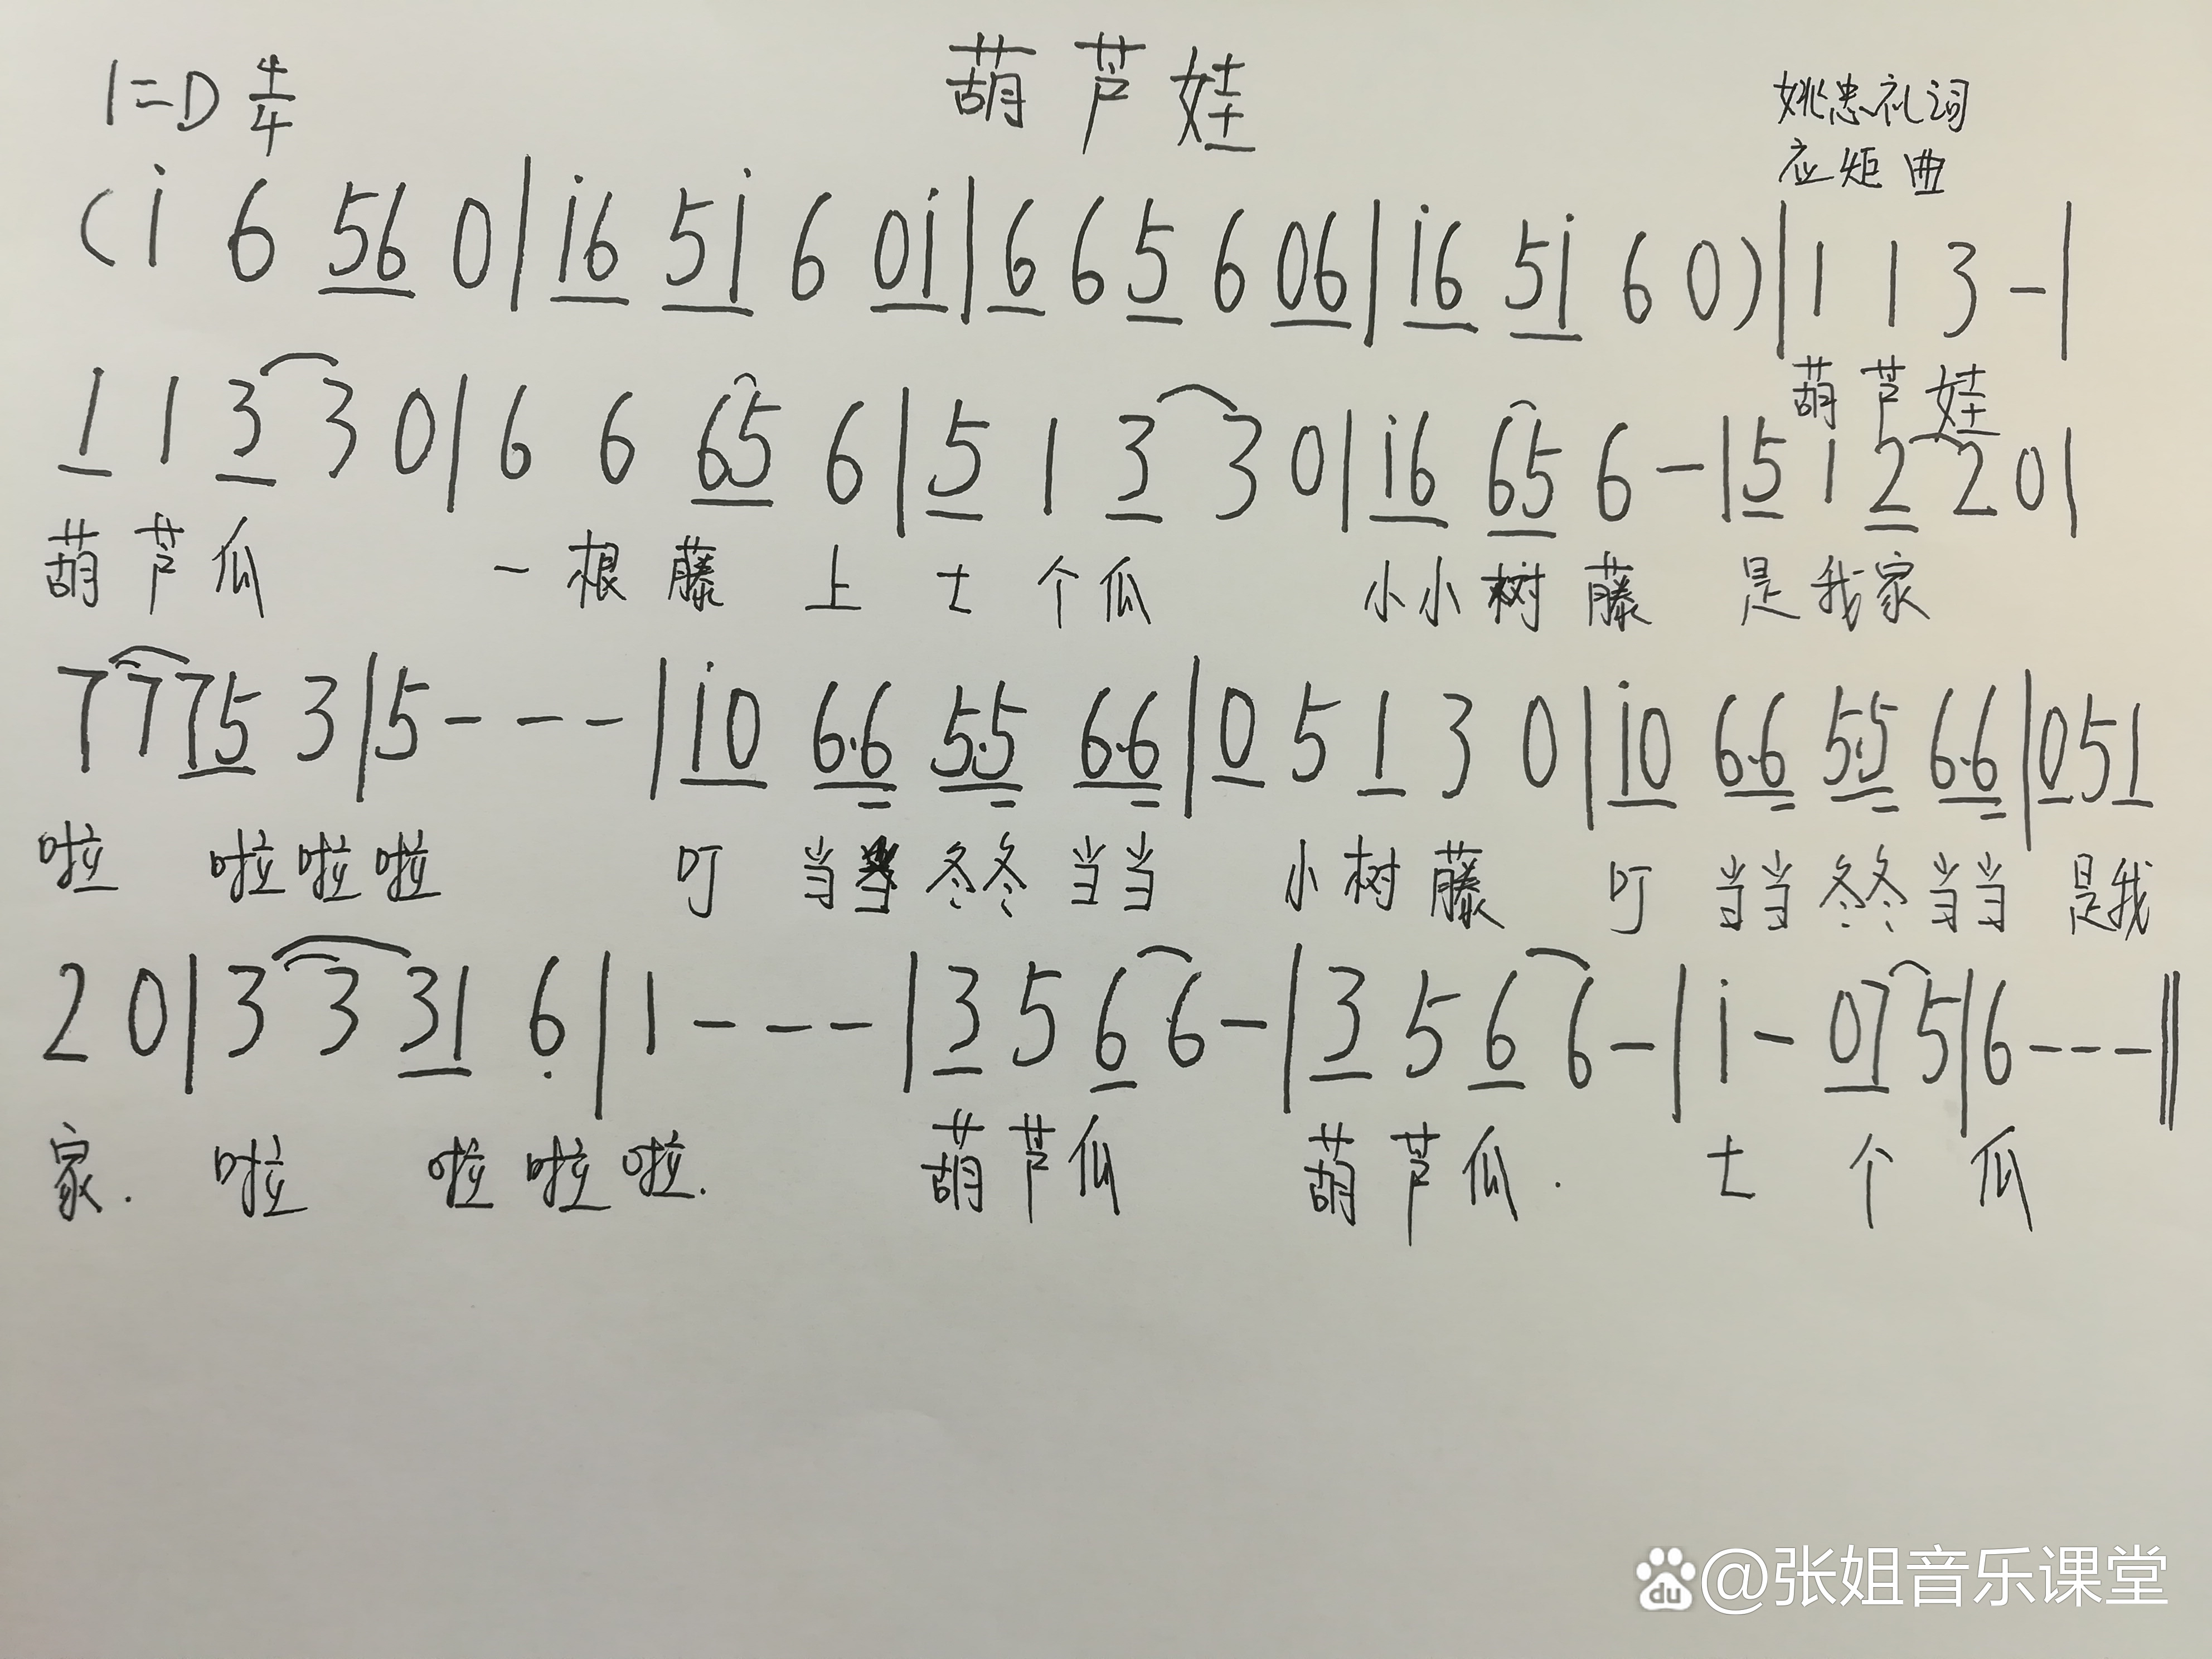 1=D 4/4
葫芦娃
姚忠礼词
应炬曲
(i 6 56 0|i6 5i 6 0i|6 6 5 6 06|i6 5i 6 0)|1 1 3 -|
葫芦娃
1 1 3 3 0|6 6 65 6|5 1 3 3 0|i6 65 6 -|5 1 2 2 0|
葫芦瓜 一根藤上七个瓜 小小树藤 是我家
7 7 75 3|5 - - -|i0 6·6 5·5 6·6|0 5 1 3 0|i0 6·6 5·5 6·6|0 5 1
啦 啦啦啦 叮 当当 冬冬 当当 小树藤 叮 当当 冬冬 当当 是我
2 0|3 3 31 6̣|1 - - -|3 5 6 6 -|3 5 6 6 -|i - 07 5|6 - - -‖
家. 啦 啦啦啦. 葫芦瓜 葫芦瓜. 七个瓜
du @张姐音乐课堂